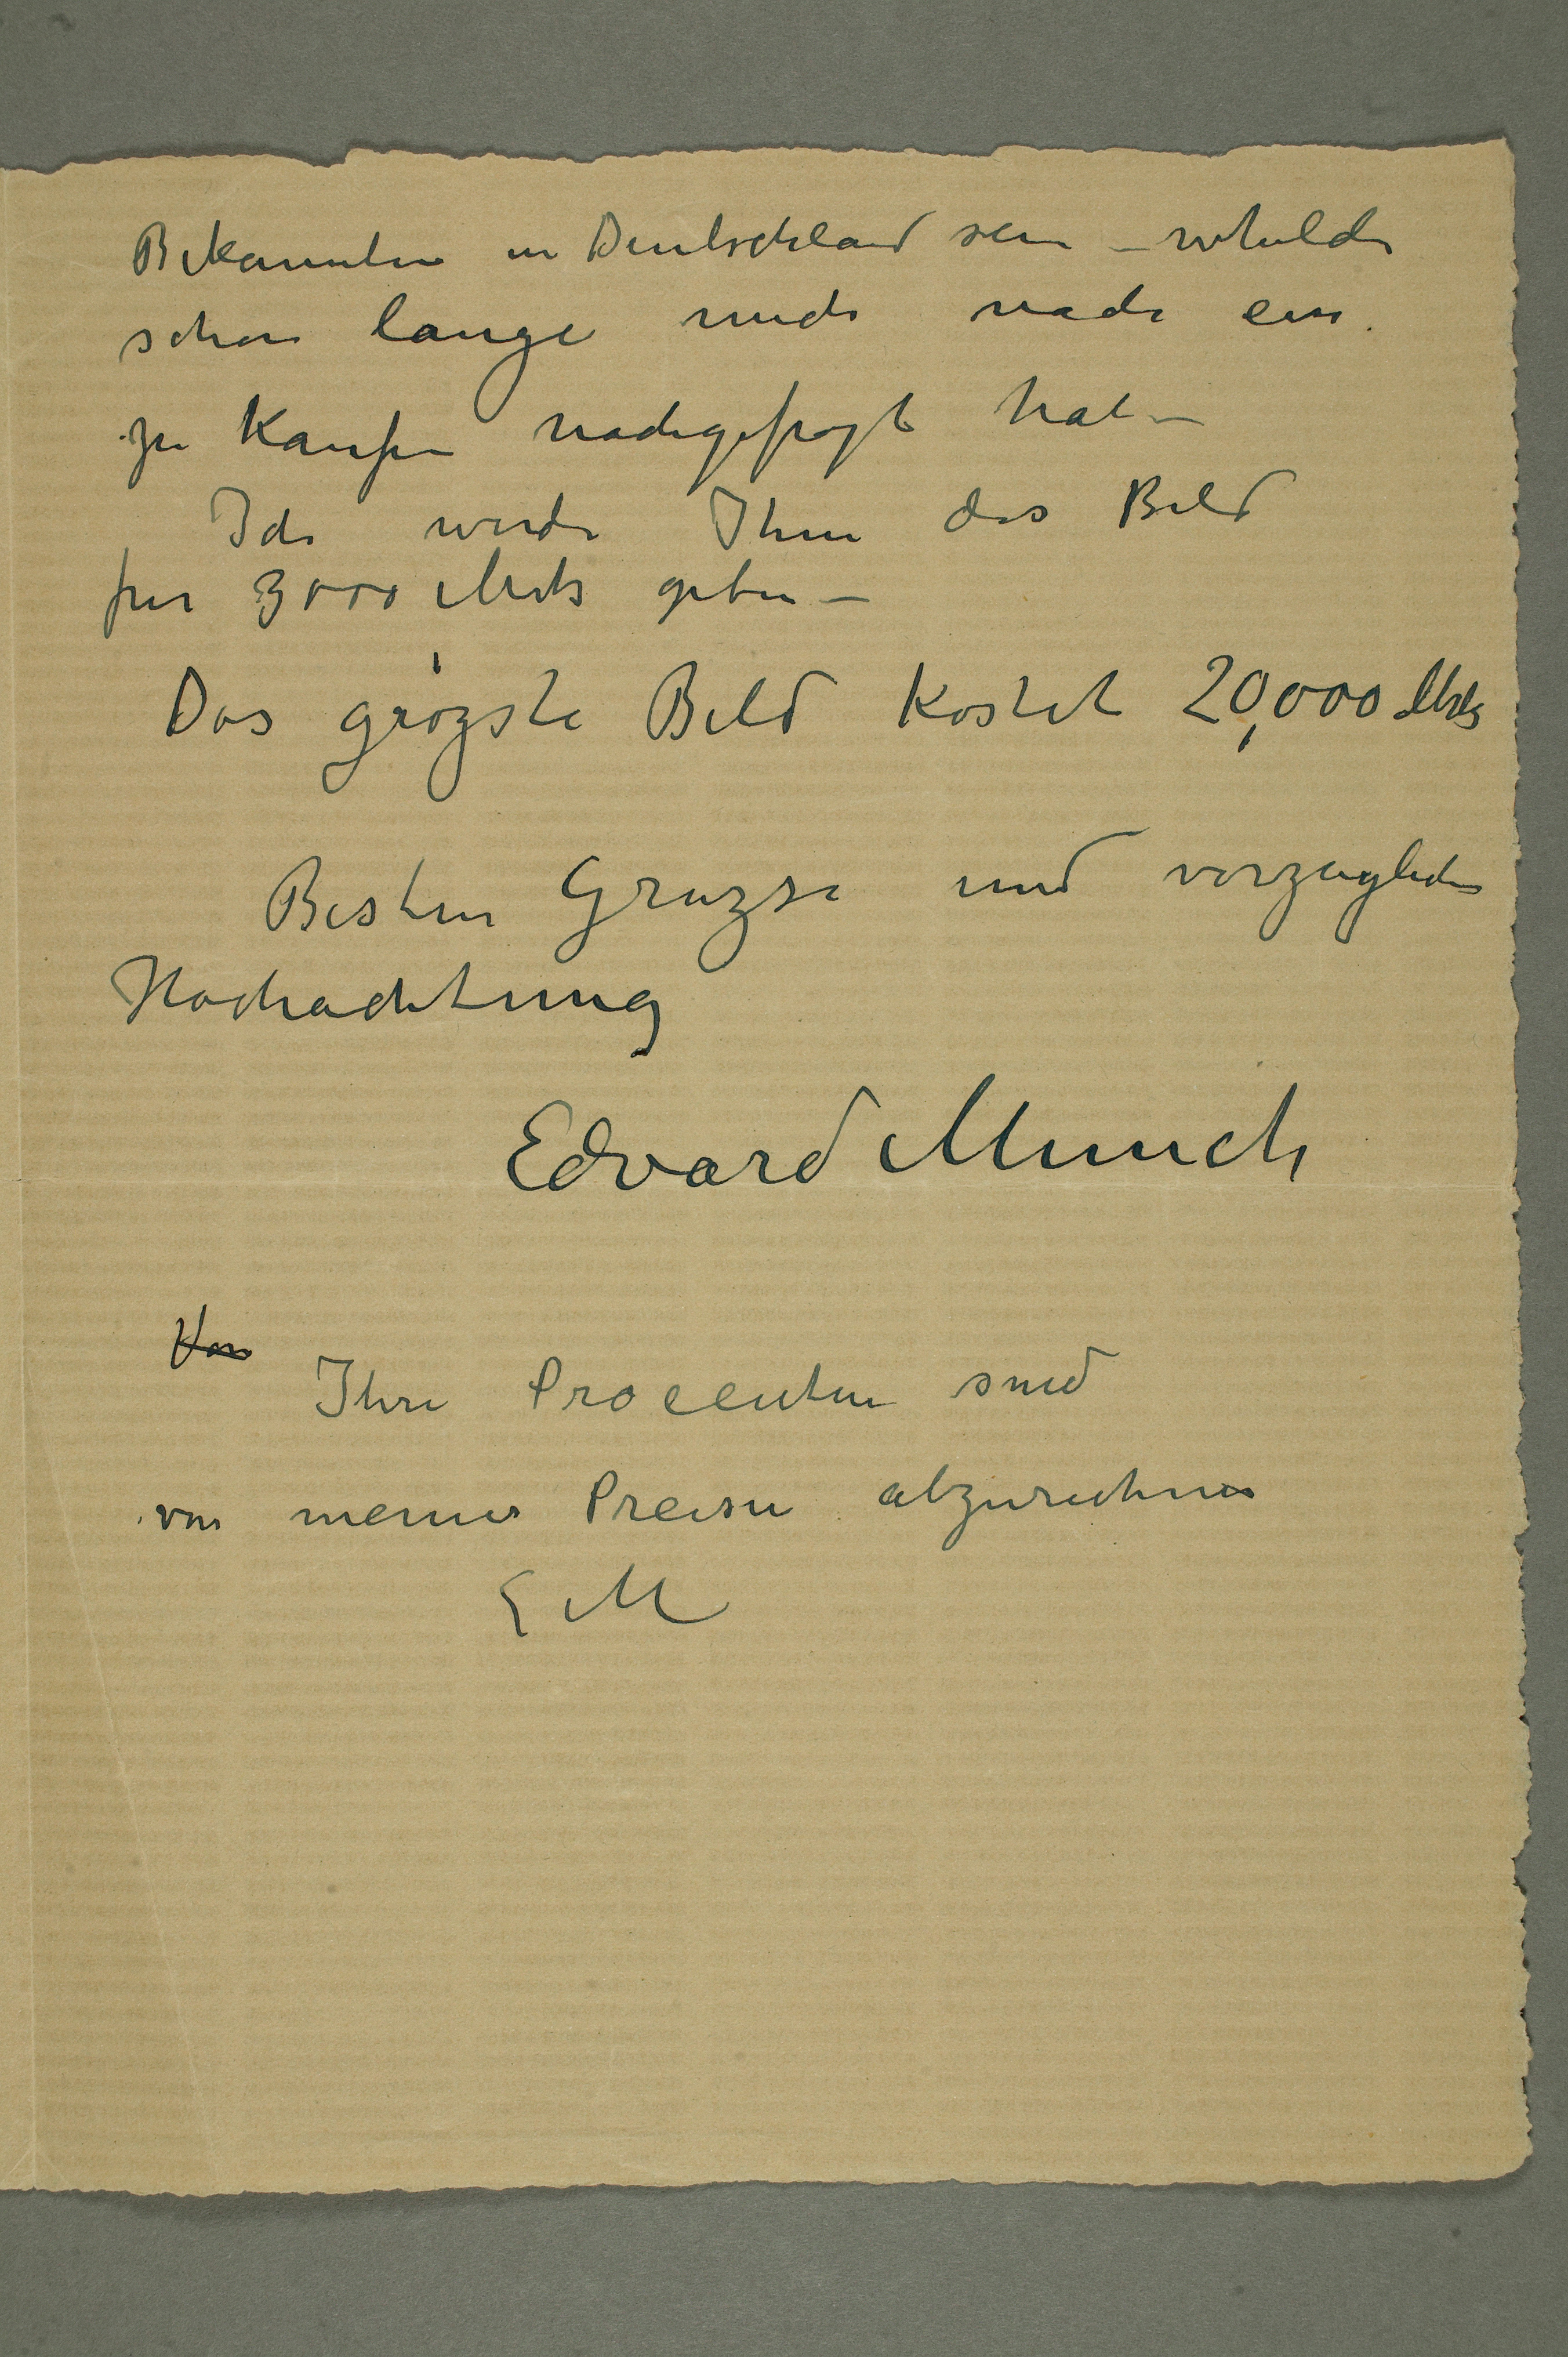 Bekannten in Deutschland sein –
schon lange mich nach ein
zu kaufen nachgefragt hat –
Ich werde Ihnen das Bild
fur 3000 Mrk geben –
Das grözste Bild kostet 20,000 Mrk
Besten Gruzse und vorzuglichen
Hochachtung
Edvard Munch
Von
Ihre Procenten sind
von meinen Preisen abzurechnen
E M